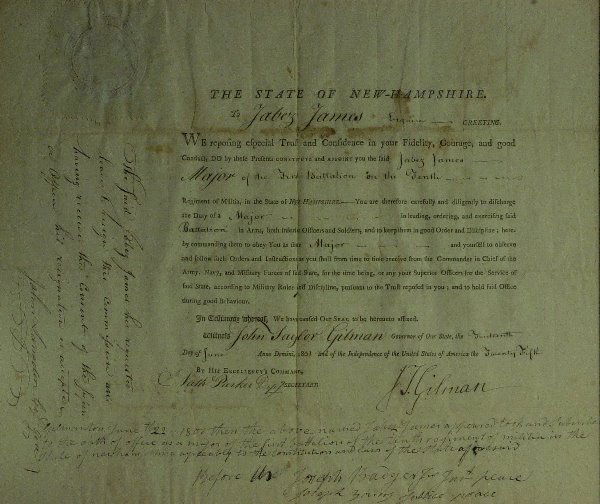 THE STATE OF NEW-HAMPSHIRE.
To Jabez James Esquire GREETING.
WE reposing especial Trust and Confidence in your Fidelity, Courage, and good
Conduct, DO by these Presents CONSTITUTE and APPOINT you the said Jabez James
Major of the First Battalion in the Tenth
Regiment of Militia, in the State of New Hampshire.—You are therefore carefully and diligently to discharge
the Duty of a Major in leading, ordering, and exercising said
Battalion in Arms, both inferior Officers and Soldiers, and to keep them in good Order and Discipline; hereby
commanding them to obey You as their Major and yourself to observe
and follow such Orders and Instructions as you shall from time to time receive from the Commander in Chief of the
Army, Navy, and Military Forces of said State, for the time being, or any your Superior Officers for the Service of
said State, according to Military Rules and Discipline, pursuant to the Trust reposed in you; and to hold said Office
during good Behaviour.
In Testimony whereof, We have caused Our Seal to be hereunto affixed.
Witness John Taylor Gilman Governor of Our State, the
Day of June Anno Domini, 1801 and of the Independence of the United States of America the Twenty Fifth
BY HIS EXCELLENCY'S COMMAND,
Parker Dpy SECRETARY. J T Gilman
June 22 1801 then the above named Jabez James appeared took and subscribed
to the oath of office as a major of the first battalion of the tenth regiment of militia in the
State of agreeably to the constitution and laws of the State aforesaid
Before Me Joseph Badger Just peace
Joseph Young Justice peace
The said Jabez James has requested
leave to resign this Commission and
having the of the
his resignation is accepted
John Langdon